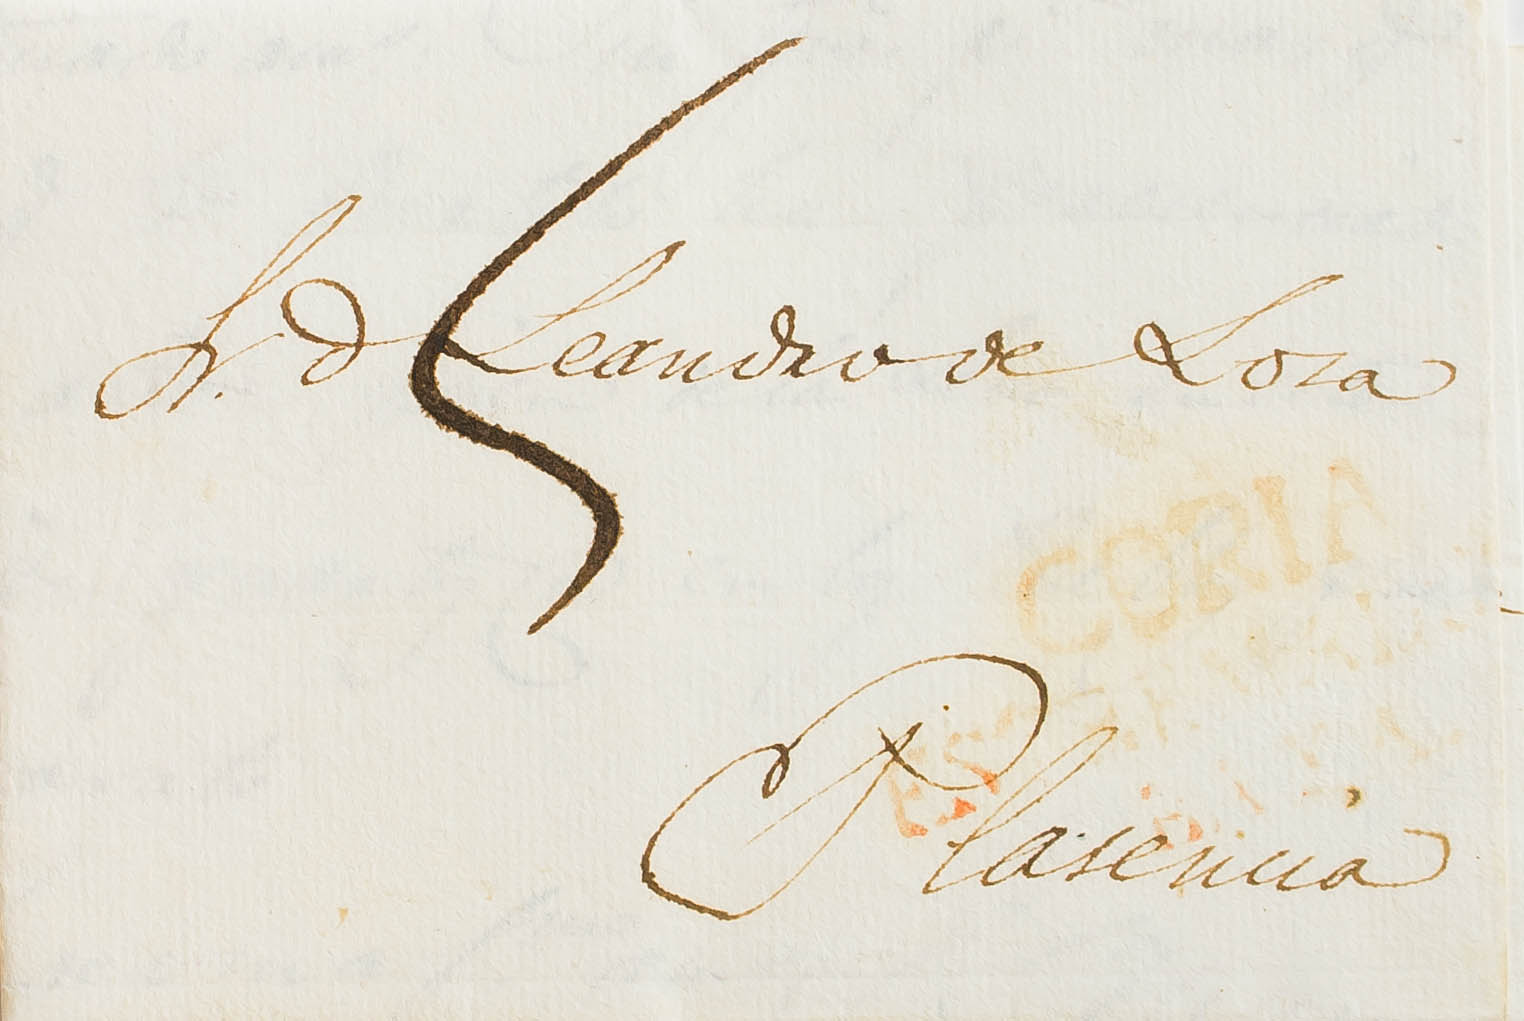 Sr. d Leandro de Lora
5
CORIA
Plasencia